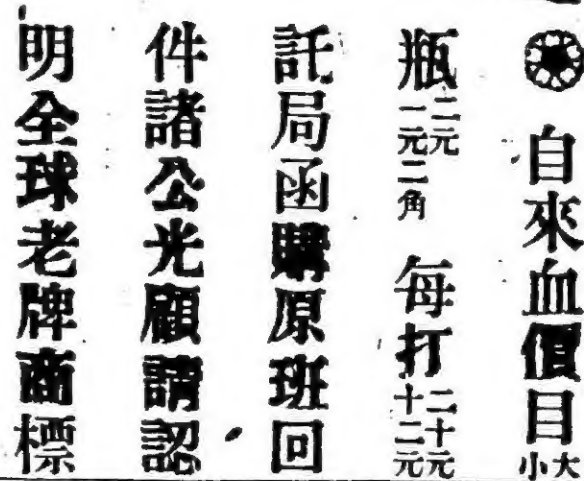 自來血價目大小
瓶二元一元二角 每打二十元十二元
託局函購原班回
件諸公光顧請認
明全球老牌商標